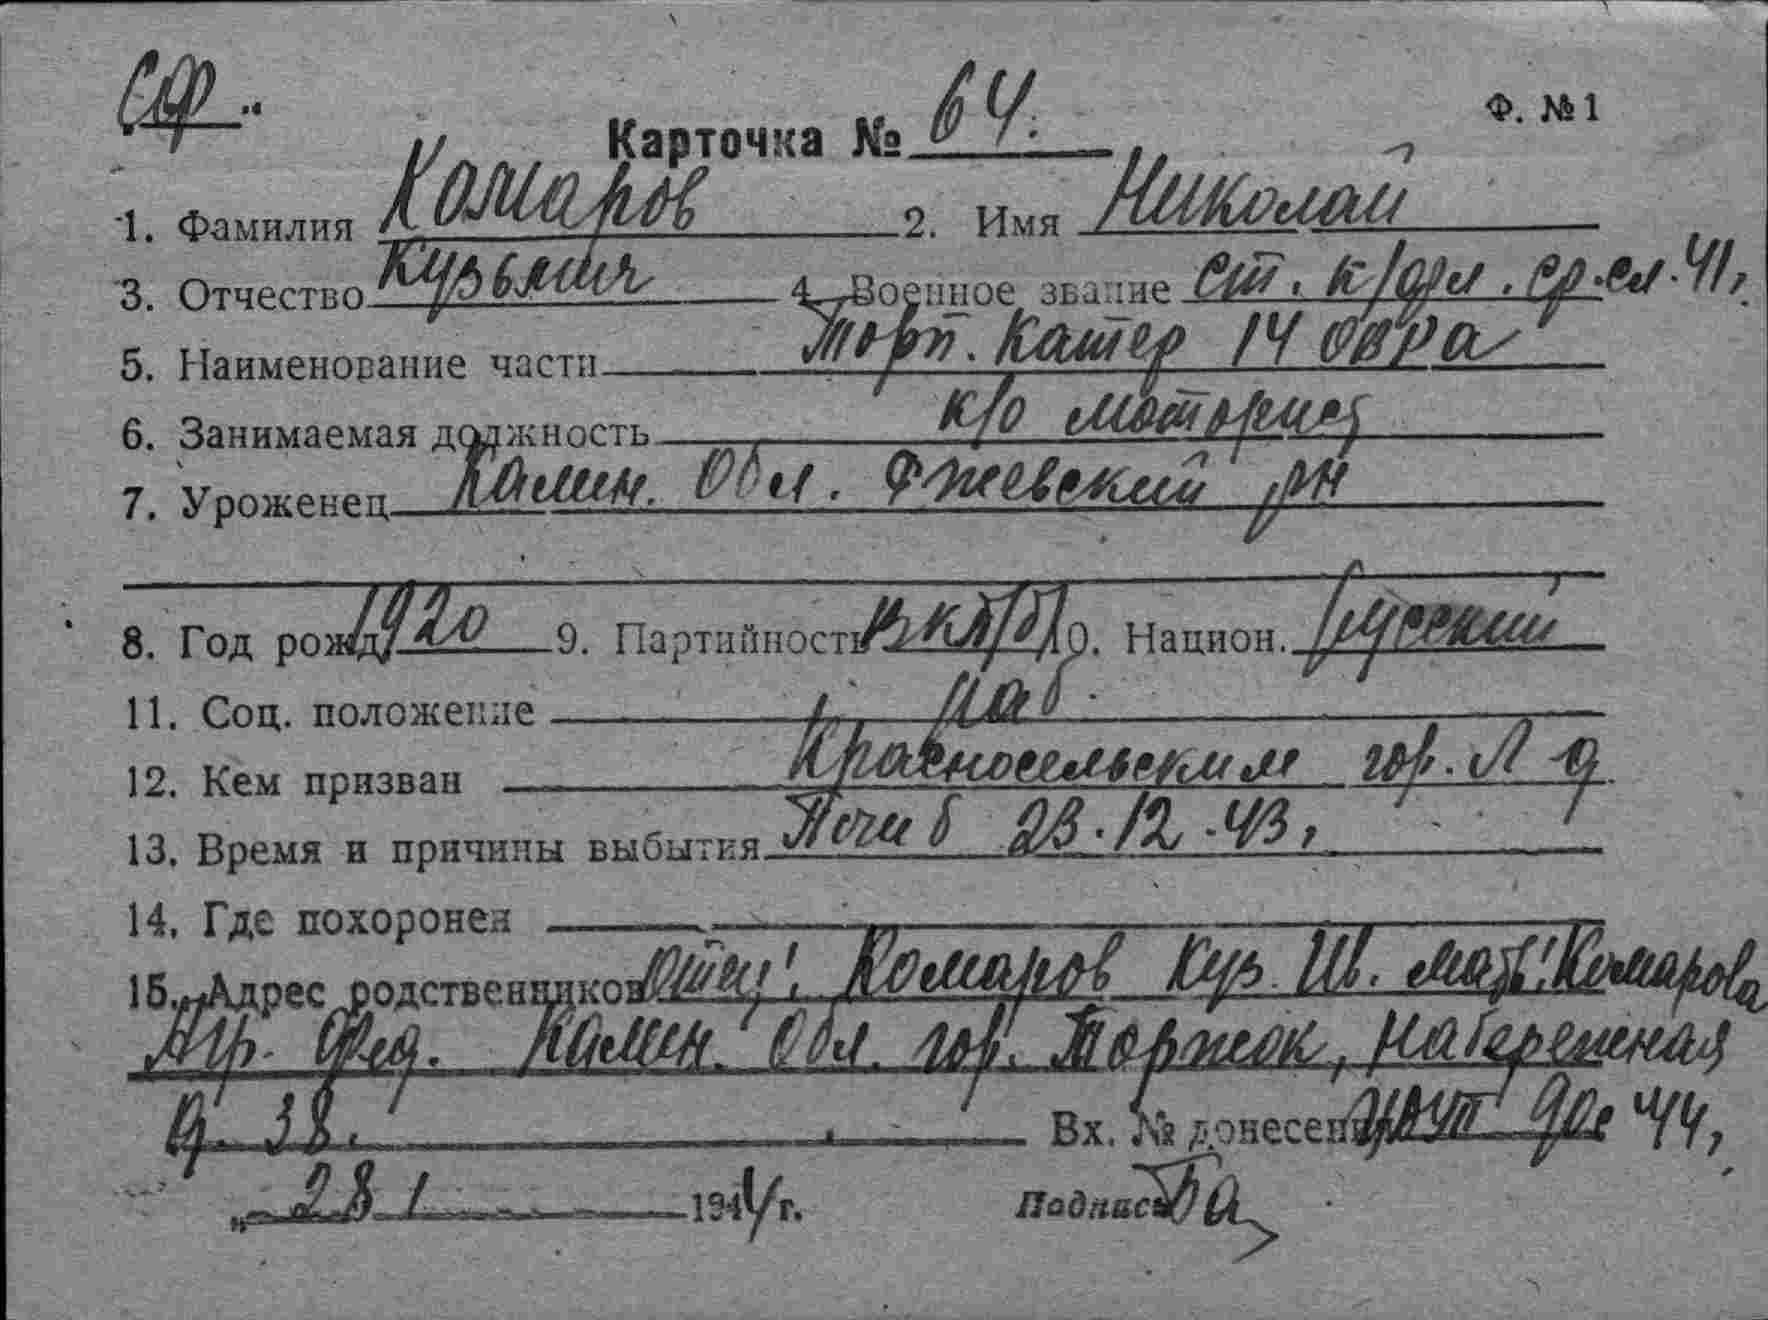 СФ.
Карточка № 64. Ф. №1
1. Фамилия Комаров 2. Имя Николай
3. Отчество Кузьмич 4. Военное звание ст. к/фл. ср. сл. 41,
5. Наименование части Торп. Катер 14 ОВРа
6. Занимаемая должность к/о моторист
7. Уроженец Калин. Обл. Ржевский рн
8. Год рожд. 1920 9. Партийность ВКП/б/ 10. Национ. русский
11. Соц. положение раб.
12. Кем призван Красносельским гор.
13. Время и причины выбытия Погиб 23.12.43,
14. Где похоронен
15. Адрес родственников Отец: Комаров Куз. мать: Комарова
Агр. Фед. Калин. Обл. гор. Торжок, Набережная
д. 38. Вх. № донесен 44,
„ 28 1 1944 г. Подпись